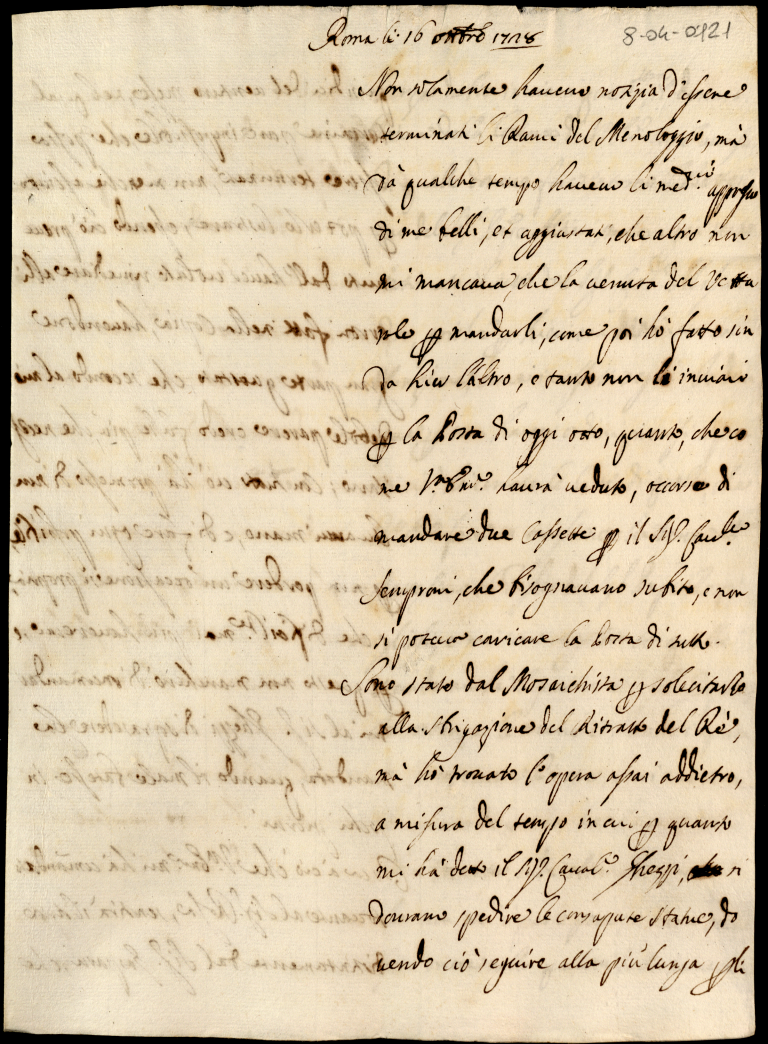 Roma li 16 ottbre 1728
8-04-0421
Non solamente havevo notizia d'essere
terminati li Rami del Menologgio, mà
dà qualche tempo havevo li med.mi appresso
di me belli, et aggiustati, che altro non
mi mancava, che la venuta del Vettu
rale p mandarli, come poi hò fatto sin
da hier l'altro, e tanto non li inviai
p la Posta di oggi otto, quanto, che co
me V.ra havrà veduto, occorse di
mandare due Cassette p il Sig.r Cav.re
Semproni, che bisognavano subito, e non
si poteva caricare la Posta di tutto.
Sono stato dal Mosaichista p solecitarlo
alla sbrigazione del Ritratto del Rè,
mà hò trovato l'opera assai addietro,
a misura del tempo in cui p quanto
mi hà detto il Sig.r Caval.re Ghezzi, si
dovranno spedire le consapute statue, do
vendo ciò seguire alla più lunga p gli